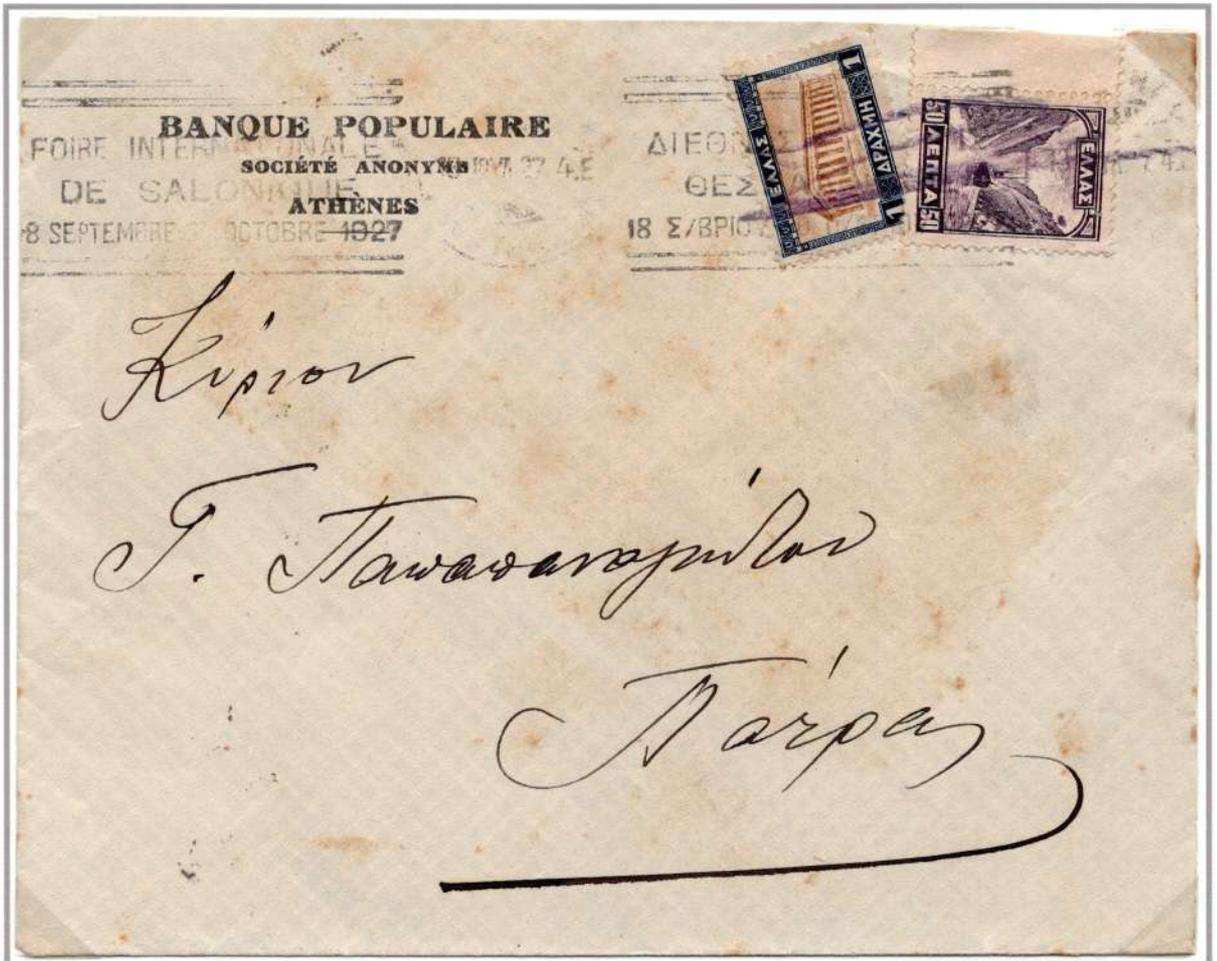 BANQUE POPULAIRE
SOCIÉTÉ ANONYME
ATHÈNES
FOIRE INTERNATIONALE
DE SALONIQUE
SEPTEMBRE OCTOBRE 1927
ΔΙΕΘ
ΘΕΣ
18 Σ/ΒΡΙΟΥ
ΕΛΛΑΣ
1 ΔΡΑΧΜΗ 1
ΕΛΛΑΣ
50 ΛΕΠΤΑ 50
Κύριον
Γ. Παπαπαναγιώτου
Πάτρας